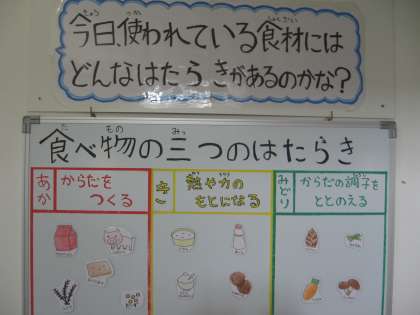 今日、使われている食材には
どんなはたらきがあるのかな？
食べ物の三つのはたらき
あか
からだを
つくる
き
熱や力の
もとになる
みどり
からだの調子を
ととのえる